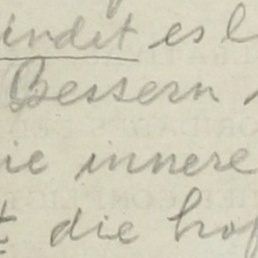 indet es l
Bessern
ie innere
t die hof